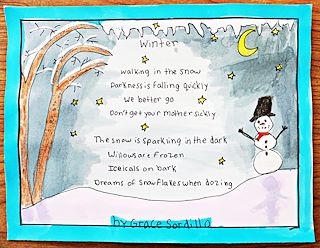 Winter
walking in the snow
Darkness is falling quickly
We better go
Don't get your mother sickly
The snow is sparkling in the dark
Willows are frozen
Icicals on bark
Dreams of snowflakes when dozing
by Grace Sordillo